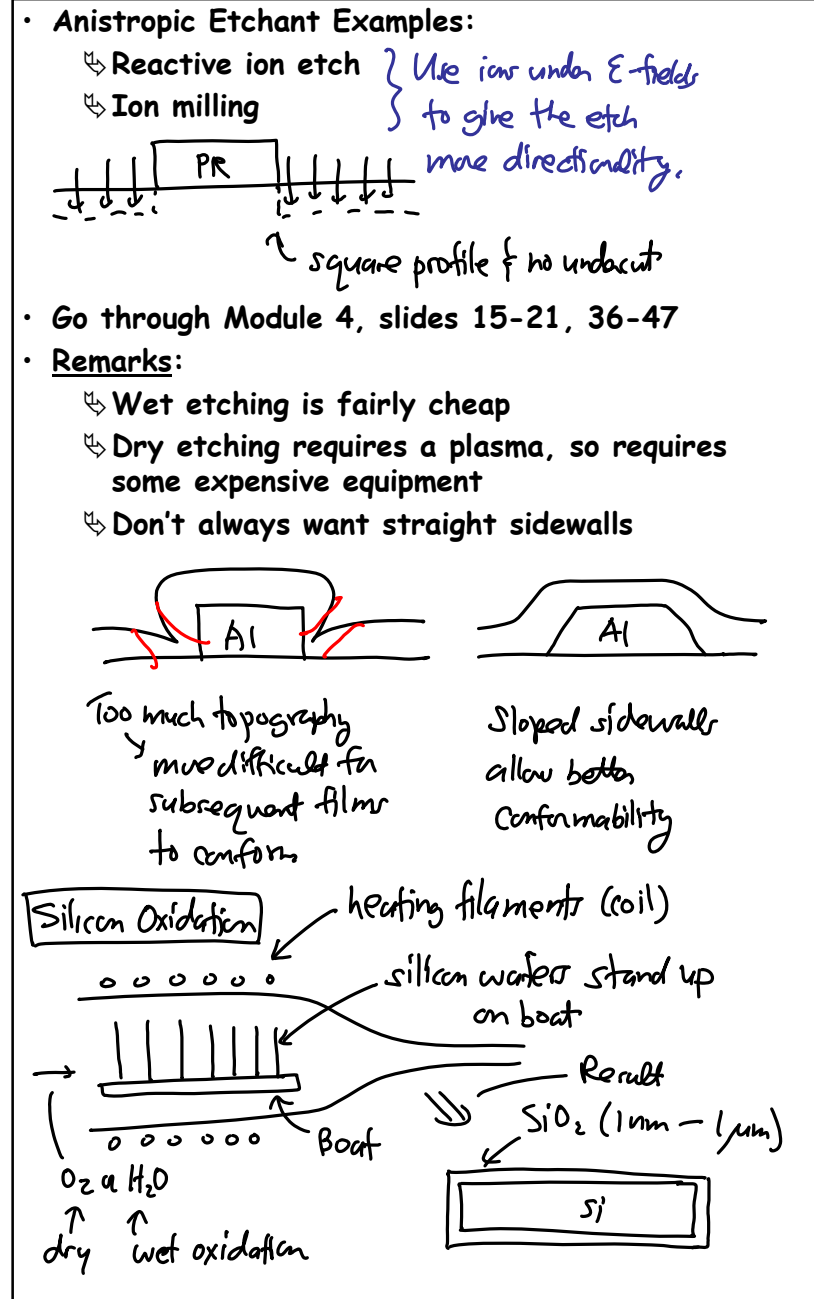 · Anistropic Etchant Examples:
↳ Reactive ion etch
↳ Ion milling
} Use ions under E-fields
to give the etch
more directionality.
PR
square profile & no undercut
· Go through Module 4, slides 15-21, 36-47
· Remarks:
↳ Wet etching is fairly cheap
↳ Dry etching requires a plasma, so requires
some expensive equipment
↳ Don't always want straight sidewalls
Al
Al
Too much topography
more difficult for
subsequent films
to conform
Sloped sidewalls
allow better
conformability
Silicon Oxidation
heating filaments (coil)
silicon wafers stand up
on boat
Result
SiO₂ (1nm – 1μm)
Boat
O₂ or H₂O
Si
dry
wet oxidation